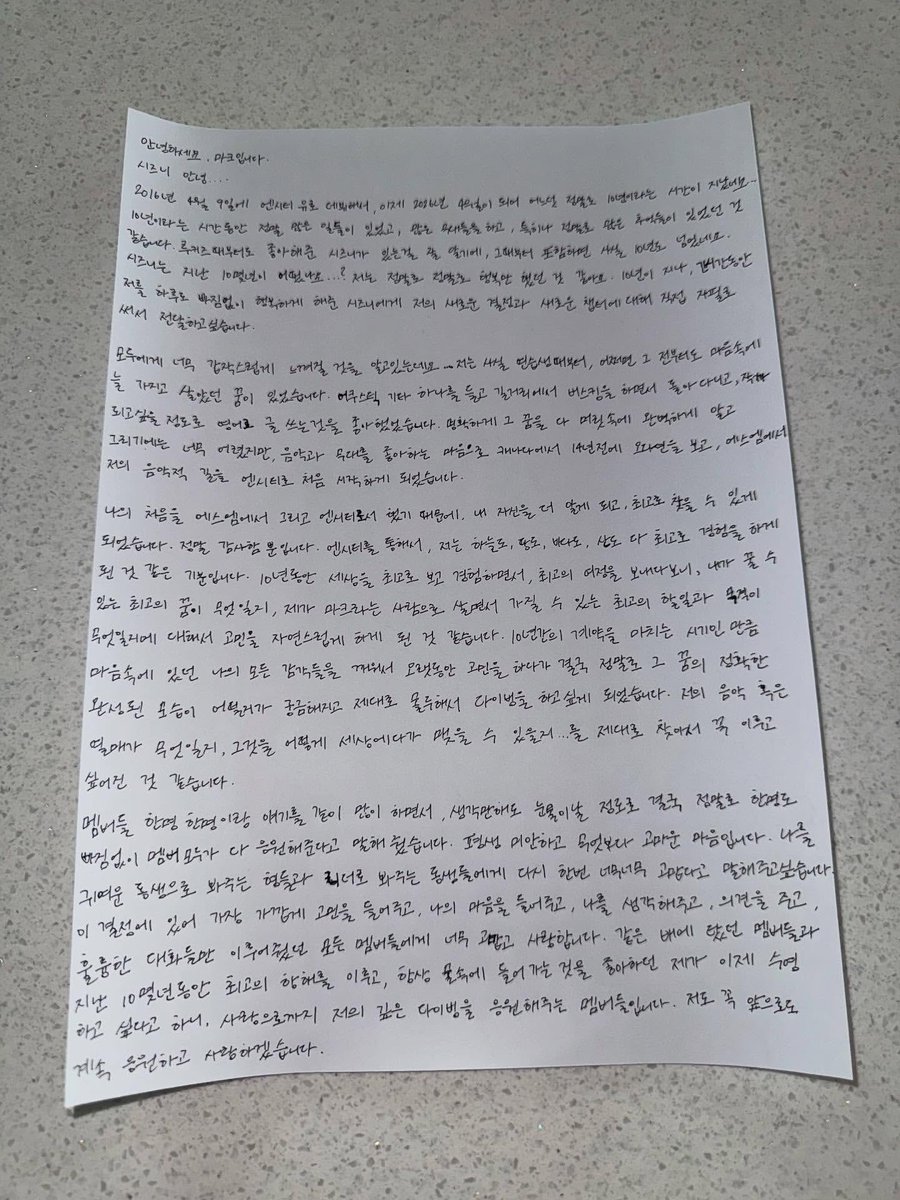 안녕하세요. 마크입니다.
시즈니 안녕....
2016년 4월 9일에 엔시티 유로 데뷔해서, 이제 2026년 4월이 되어 어느덧 정말로 10년이라는 시간이 지났네요...
10년이라는 시간동안 정말 많은 일들이 있었고, 많은 도 하고, 특히나 정말로 많은 추억들이 있었던 것
같습니다. 루키즈 때부터도 좋아해준 시즈니가 있는걸 잘 알기에, 그때부터 포함하면 사실 10년도 넘었네요.
시즈니는 지난 10몇년이 어땠나요...? 저는 정말로 정말로 행복만 했던 것 같아요. 10년이 지나, 긴시간동안
저를 하루도 빠짐없이 행복하게 해준 시즈니에게 저의 새로운 결정과 새로운 챕터에 대해 직접 자필로
써서 전달하고싶습니다.
모두에게 너무 갑작스럽게 느껴질 것을 알고있는데요... 저는 사실 연습생때부터, 어쩌면 그 전부터도 마음속에
늘 가지고 살았던 꿈이 있었습니다. 어쿠스틱 기타 하나를 들고 길거리에서 버스킹을 하면서 돌아 다니고, 작가
되고싶을 정도로 영어로 글 쓰는것을 좋아했었습니다. 명확하게 그 꿈을 다 머릿속에 완벽하게 알고
그리기에는 너무 어렸지만, 음악과 무대를 좋아하는 마음으로 캐나다에서 14년전에 오디션을 보고, 에스엠에서
저의 음악적 길을 엔시티로 처음 시작하게 되었습니다.
나의 처음을 에스엠에서 그리고 엔시티로서 했기 때문에, 내 자신을 더 알게 되고, 최고로 찾을 수 있게
되었습니다. 정말 감사할 뿐입니다. 엔시티를 통해서, 저는 하늘도, 땅도, 바다도, 산도 다 최고로 경험을 하게
된 것 같은 기분입니다. 10년동안 세상을 최고로 보고 경험하면서, 최고의 여정을 보내다보니, 내가 꿀 수
있는 최고의 꿈이 무엇일지, 제가 마크라는 사람으로 살면서 가질 수 있는 최고의 할일과 목적이
무엇일지에 대해서 고민을 자연스럽게 하게 된 것 같습니다. 10년간의 계약을 마치는 시기인 만큼
마음속에 있던 나의 모든 감각들을 깨워서 오랫동안 고민을 하다가 결국 정말로 그 꿈의 정확한
완성된 모습이 어떨지가 궁금해지고 제대로 몰두해서 다이빙을 하고싶게 되었습니다. 저의 음악 혹은
열매가 무엇일지, 그것을 어떻게 세상에다가 맺을 수 있을지...를 제대로 찾아서 꼭 이루고
싶어진 것 같습니다.
멤버들 한명 한명이랑 얘기를 같이 많이 하면서, 생각만해도 눈물이날 정도로 결국 정말로 한명도
빠짐없이 멤버 모두가 다 응원해준다고 말해 줬습니다. 평생 미안하고 무엇보다 고마운 마음입니다. 나를
귀여운 동생으로 봐주는 형들과 리더로 봐주는 동생들에게 다시 한번 너무너무 고맙다고 말해주고싶습니다.
이 결정에 있어 가장 가깝게 고민을 들어주고, 나의 마음을 들어주고, 나를 생각해주고, 의견을 주고,
훌륭한 대화들만 이루어줬던 모든 멤버들에게 너무 고맙고 사랑합니다. 같은 배에 탔던 멤버들과
지난 10몇년동안 최고의 항해를 이루고, 항상 물속에 들어가는 것을 좋아하던 제가 이제 수영
하고 싶다고 하니, 사랑으로까지 저의 깊은 다이빙을 응원해주는 멤버들입니다. 저도 꼭 앞으로도
계속 응원하고 사랑하겠습니다.